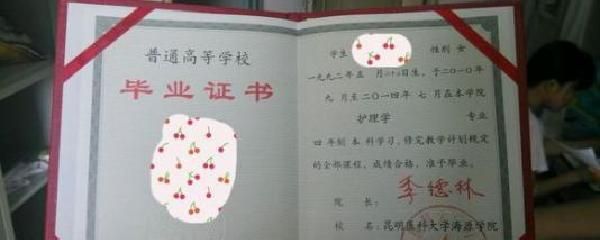 普通高等学校
毕业证书
学生 性别 女
一九九二年五 月二十六日生，于二〇一〇年
九 月至二〇一四年 七 月在本学院
护理学 专业
四 年制 本 科学习，修完教学计划规定
的全部课程，成绩合格，准予毕业。
院 长： 李德林
校 名：昆明医科大学海源学院